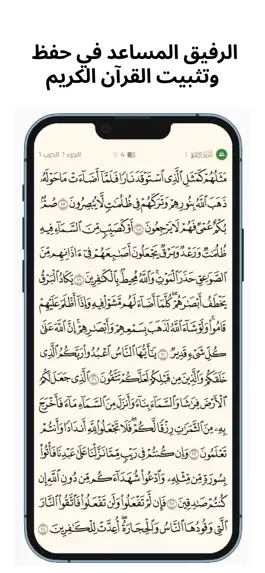 الرفيق المساعد في حفظ
وتثبيت القرآن الكريم
الجزء 1 الحزب 1
4
مَثَلُهُمْ كَمَثَلِ ٱلَّذِى ٱسْتَوْقَدَ نَارًا فَلَمَّآ أَضَآءَتْ مَا حَوْلَهُۥ
ذَهَبَ ٱللَّهُ بِنُورِهِمْ وَتَرَكَهُمْ فِى ظُلُمَٰتٍ لَّا يُبْصِرُونَ ١٧ صُمٌّۢ
بُكْمٌ عُمْىٌ فَهُمْ لَا يَرْجِعُونَ ١٨ أَوْ كَصَيِّبٍ مِّنَ ٱلسَّمَآءِ فِيهِ
ظُلُمَٰتٌ وَرَعْدٌ وَبَرْقٌ يَجْعَلُونَ أَصَٰبِعَهُمْ فِىٓ ءَاذَانِهِم مِّنَ
ٱلصَّوَٰعِقِ حَذَرَ ٱلْمَوْتِ وَٱللَّهُ مُحِيطٌۢ بِٱلْكَٰفِرِينَ ١٩ يَكَادُ ٱلْبَرْقُ
يَخْطَفُ أَبْصَٰرَهُمْ كُلَّمَآ أَضَآءَ لَهُم مَّشَوْا۟ فِيهِ وَإِذَآ أَظْلَمَ عَلَيْهِمْ
قَامُوا۟ وَلَوْ شَآءَ ٱللَّهُ لَذَهَبَ بِسَمْعِهِمْ وَأَبْصَٰرِهِمْ إِنَّ ٱللَّهَ عَلَىٰ
كُلِّ شَىْءٍ قَدِيرٌ ٢٠ يَٰٓأَيُّهَا ٱلنَّاسُ ٱعْبُدُوا۟ رَبَّكُمُ ٱلَّذِى
خَلَقَكُمْ وَٱلَّذِينَ مِن قَبْلِكُمْ لَعَلَّكُمْ تَتَّقُونَ ٢١ ٱلَّذِى جَعَلَ لَكُمُ
ٱلْأَرْضَ فِرَٰشًا وَٱلسَّمَآءَ بِنَآءً وَأَنزَلَ مِنَ ٱلسَّمَآءِ مَآءً فَأَخْرَجَ
بِهِۦ مِنَ ٱلثَّمَرَٰتِ رِزْقًا لَّكُمْ فَلَا تَجْعَلُوا۟ لِلَّهِ أَندَادًا وَأَنتُمْ
تَعْلَمُونَ ٢٢ وَإِن كُنتُمْ فِى رَيْبٍ مِّمَّا نَزَّلْنَا عَلَىٰ عَبْدِنَا فَأْتُوا۟
بِسُورَةٍ مِّن مِّثْلِهِۦ وَٱدْعُوا۟ شُهَدَآءَكُم مِّن دُونِ ٱللَّهِ إِن
كُنتُمْ صَٰدِقِينَ ٢٣ فَإِن لَّمْ تَفْعَلُوا۟ وَلَن تَفْعَلُوا۟ فَٱتَّقُوا۟ ٱلنَّارَ
ٱلَّتِى وَقُودُهَا ٱلنَّاسُ وَٱلْحِجَارَةُ أُعِدَّتْ لِلْكَٰفِرِينَ ٢٤